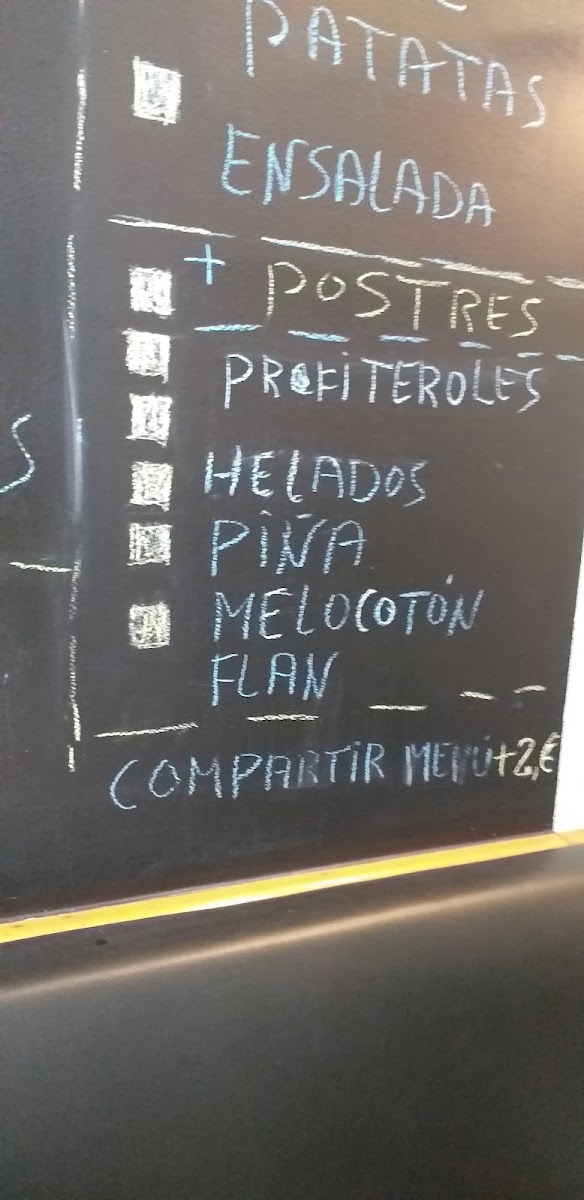 PATATAS
ENSALADA
+ POSTRES
PROFITEROLES
HELADOS
PIÑA
MELOCOTÓN
FLAN
COMPARTIR MENÚ +2,€